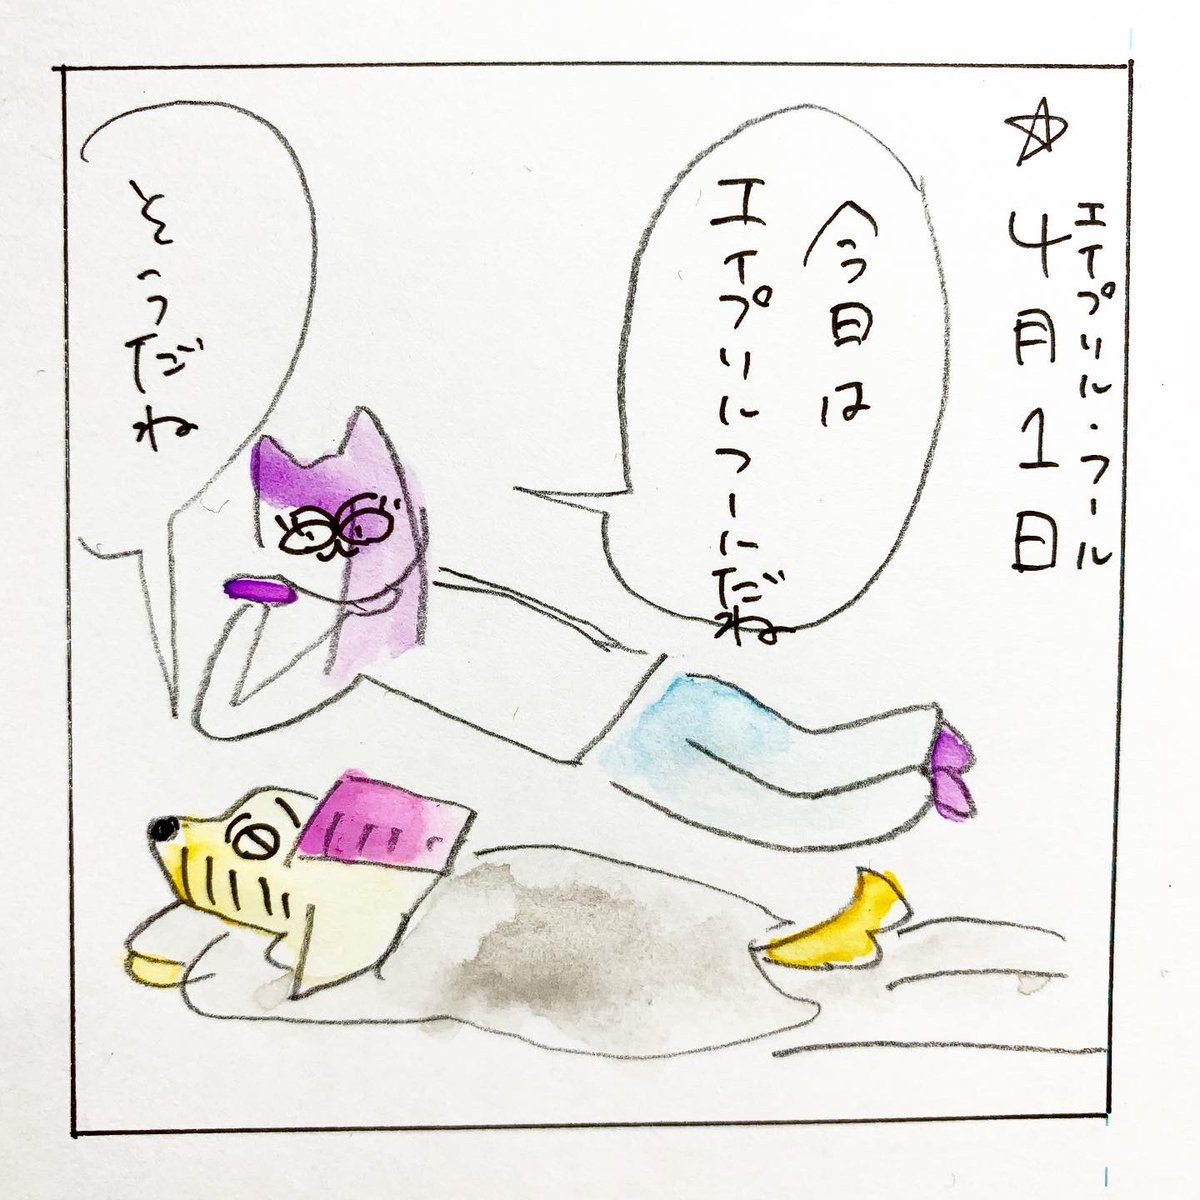 エイプリル・フール
☆4月1日
今日は
エイプリルフールだね
そうだね